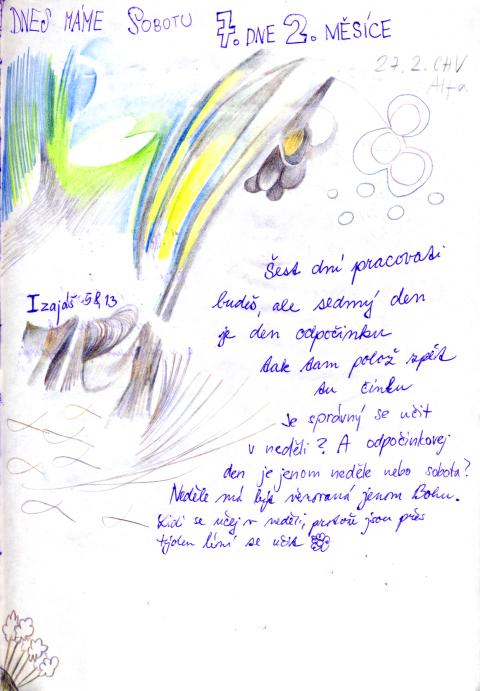 DNES MÁME SOBOTU 7. DNE 2. MĚSÍCE
27. 2. CHV
Alfa
Šest dní pracovati
Izajáš 58, 13
budeš, ale sedmý den
je den odpočinku
tak tam polož zpět
tu činku
Je správný se učit
v neděli? A odpočinkovej
den je jenom neděle nebo sobota?
Neděle má být věnovaná jenom Bohu.
Lidi se učej v neděli, protože jsou přes
týden líní se učit